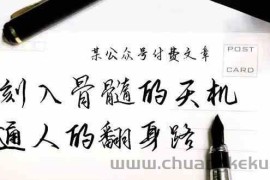 某公众号付费文章
POST
CARD
刻入骨髓的天机
通人的翻身路
www.chuangkeku